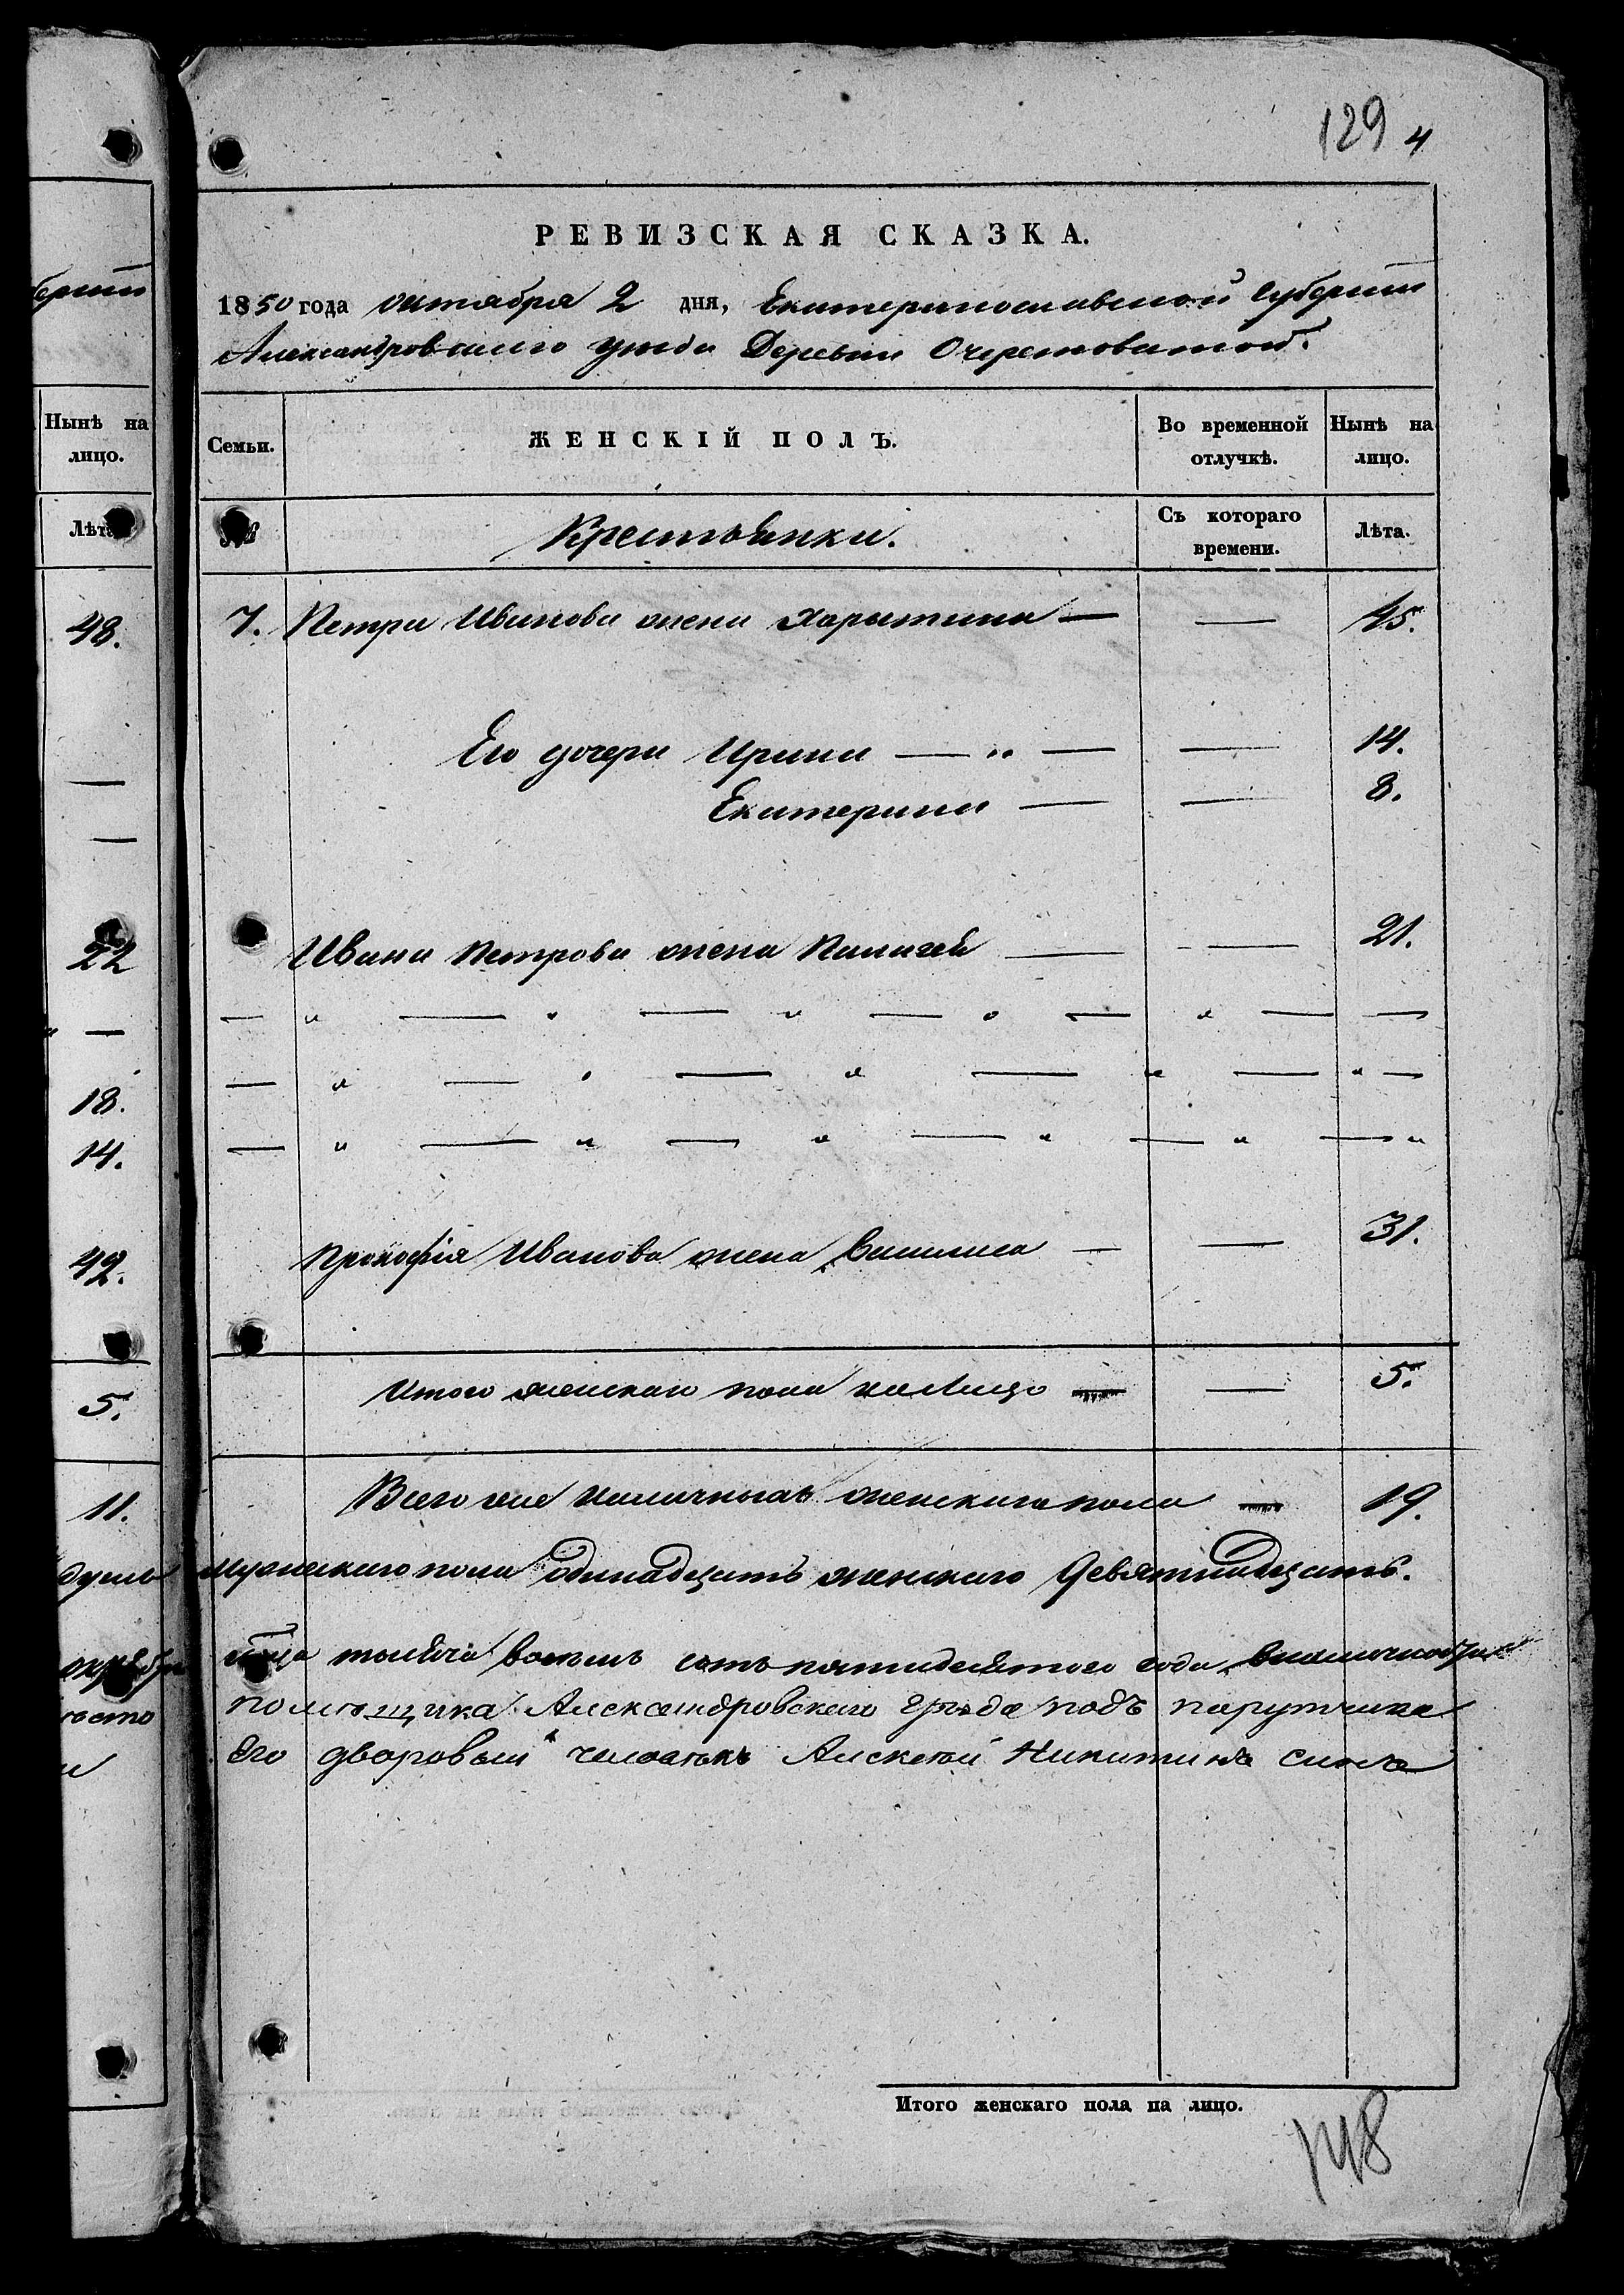 129 4
РЕВИЗСКАЯ СКАЗКА.
1850 года октября 2 дня, Екатеринославской Губернiи
Александровскаго уѣзда Деревни Очеретоватой.
Нынѣ на лицо.
Семьи.
ЖЕНСКІЙ ПОЛЪ.
Во временной отлучкѣ.
Нынѣ на лицо.
Лѣта
№
Крестьянки.
Съ котораго времени.
Лѣта.
48.
7. Петра Иванова жена Харытина — — 45.
Его дочери Ирина — „ — — 14.
Екатерина — — 8.
22 Ивана Петрова жена Палагея — — 21.
18.
14.
42. Прокофія Иванова жена Василиса — — 31.
5. Итого женскаго пола на Лицо — 5.
11. Всего же наличныхъ женскаго пола 19.
душъ Мужескаго пола одинадцать женскаго Девятнадцать.
октября тысяча восемь сотъ пятидесятого года
помѣщика Александровскаго уѣзда подъ парутчика
Его дворовый человѣкъ Алексѣй Никитинъ сынъ
Итого женскаго пола на лицо.
148